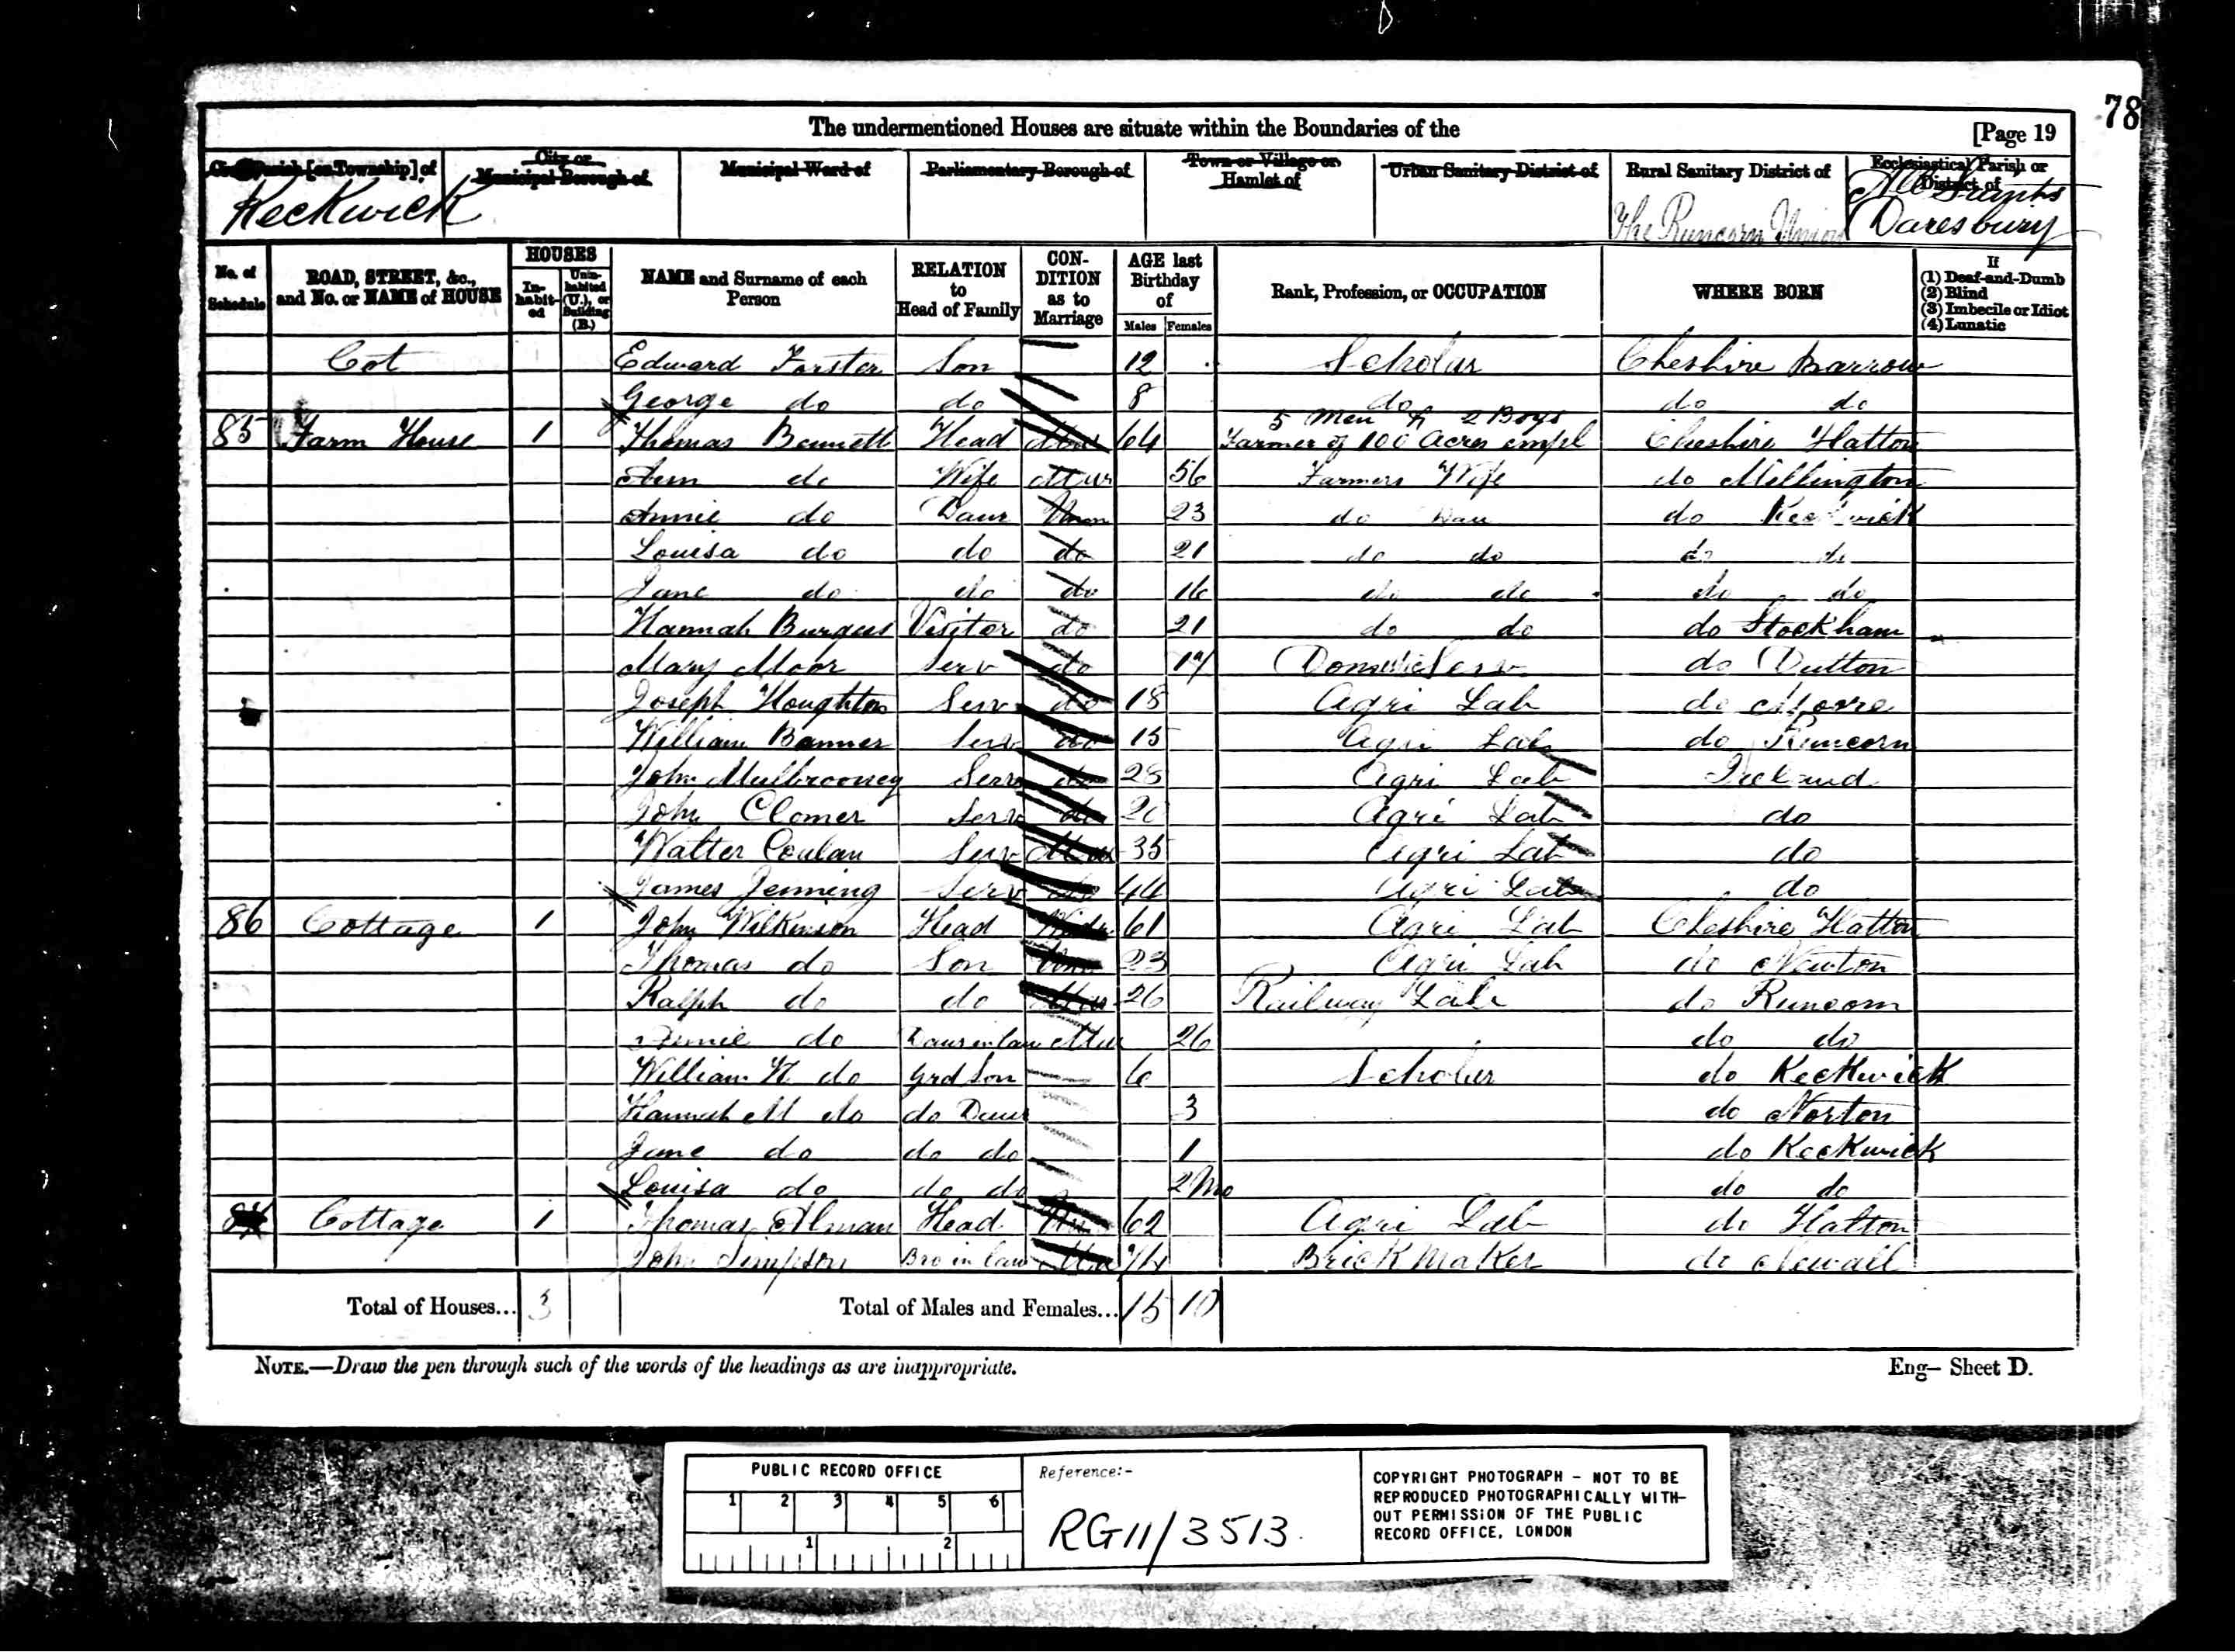 78
The undermentioned Houses are situate within the Boundaries of the
[Page 19
Civil Parish [or Township] of
Keckwick
City or Municipal Borough of
Municipal Ward of
Parliamentary Borough of
Town or Village or Hamlet of
Urban Sanitary District of
Rural Sanitary District of
The Runcorn Union
Ecclesiastical Parish or District of
All Saints Daresbury
No. of Schedule
ROAD, STREET, &c., and No. or NAME of HOUSE
HOUSES
Inhabited
Uninhabited (U.), or Building (B.)
NAME and Surname of each Person
RELATION to Head of Family
CONDITION as to Marriage
AGE last Birthday of
Males Females
Rank, Profession, or OCCUPATION
WHERE BORN
If
(1) Deaf-and-Dumb
(2) Blind
(3) Imbecile or Idiot
(4) Lunatic
Cot Edward Forster Son 12 Scholar Cheshire Barrow
George do do 8 do do do
5 Men & 2 Boys
85 Farm House 1 Thomas Bennett Head Mar 64 Farmer of 100 Acres empl Cheshire Hatton
Ann do Wife Mar 56 Farmers Wife do Millington
Annie do Daur Unm 23 do Dau do Keckwick
Louisa do do do 21 do do do do
Jane do do do 16 do do do do
Hannah Burgess Visitor do 21 do do do Stockham
Mary Moor Serv do Domestic Serv do Dutton
Joseph Houghton Serv do 18 Agri Lab do Moore
William Banner Serv do 15 Agri Lab do Runcorn
John Mulbrooney Serv do 28 Agri Lab Ireland
John Clomer Serv do 20 Agri Lab do
Walter Coulan Serv Mar 35 Agri Lab do
James Jenning Serv do 44 Agri Lab do
86 Cottage 1 John Wilkinson Head Widr 61 Agri Lab Cheshire Hatton
Thomas do Son Unm 23 Agri Lab do Newton
Ralph do do Mar 26 Railway Lab do Runcorn
Annie do Daur in law Mar 26 do do
William H do Grd Son 6 Scholar do Keckwick
Hannah M do do Daur 3 do Norton
Jane do do do 1 do Keckwick
Louisa do do do 2 Mo do do
87 Cottage 1 Thomas Alman Head 62 Agri Lab do Hatton
John Simpson Bro in law Mar 74 Brick Maker do Newall
Total of Houses... 3
Total of Males and Females... 15 10
NOTE.—Draw the pen through such of the words of the headings as are inappropriate.
Eng— Sheet D.
PUBLIC RECORD OFFICE
1 2 3 4 5 6
1 2
Reference:-
RG11/3513
COPYRIGHT PHOTOGRAPH - NOT TO BE
REPRODUCED PHOTOGRAPHICALLY WITH-
OUT PERMISSION OF THE PUBLIC
RECORD OFFICE, LONDON